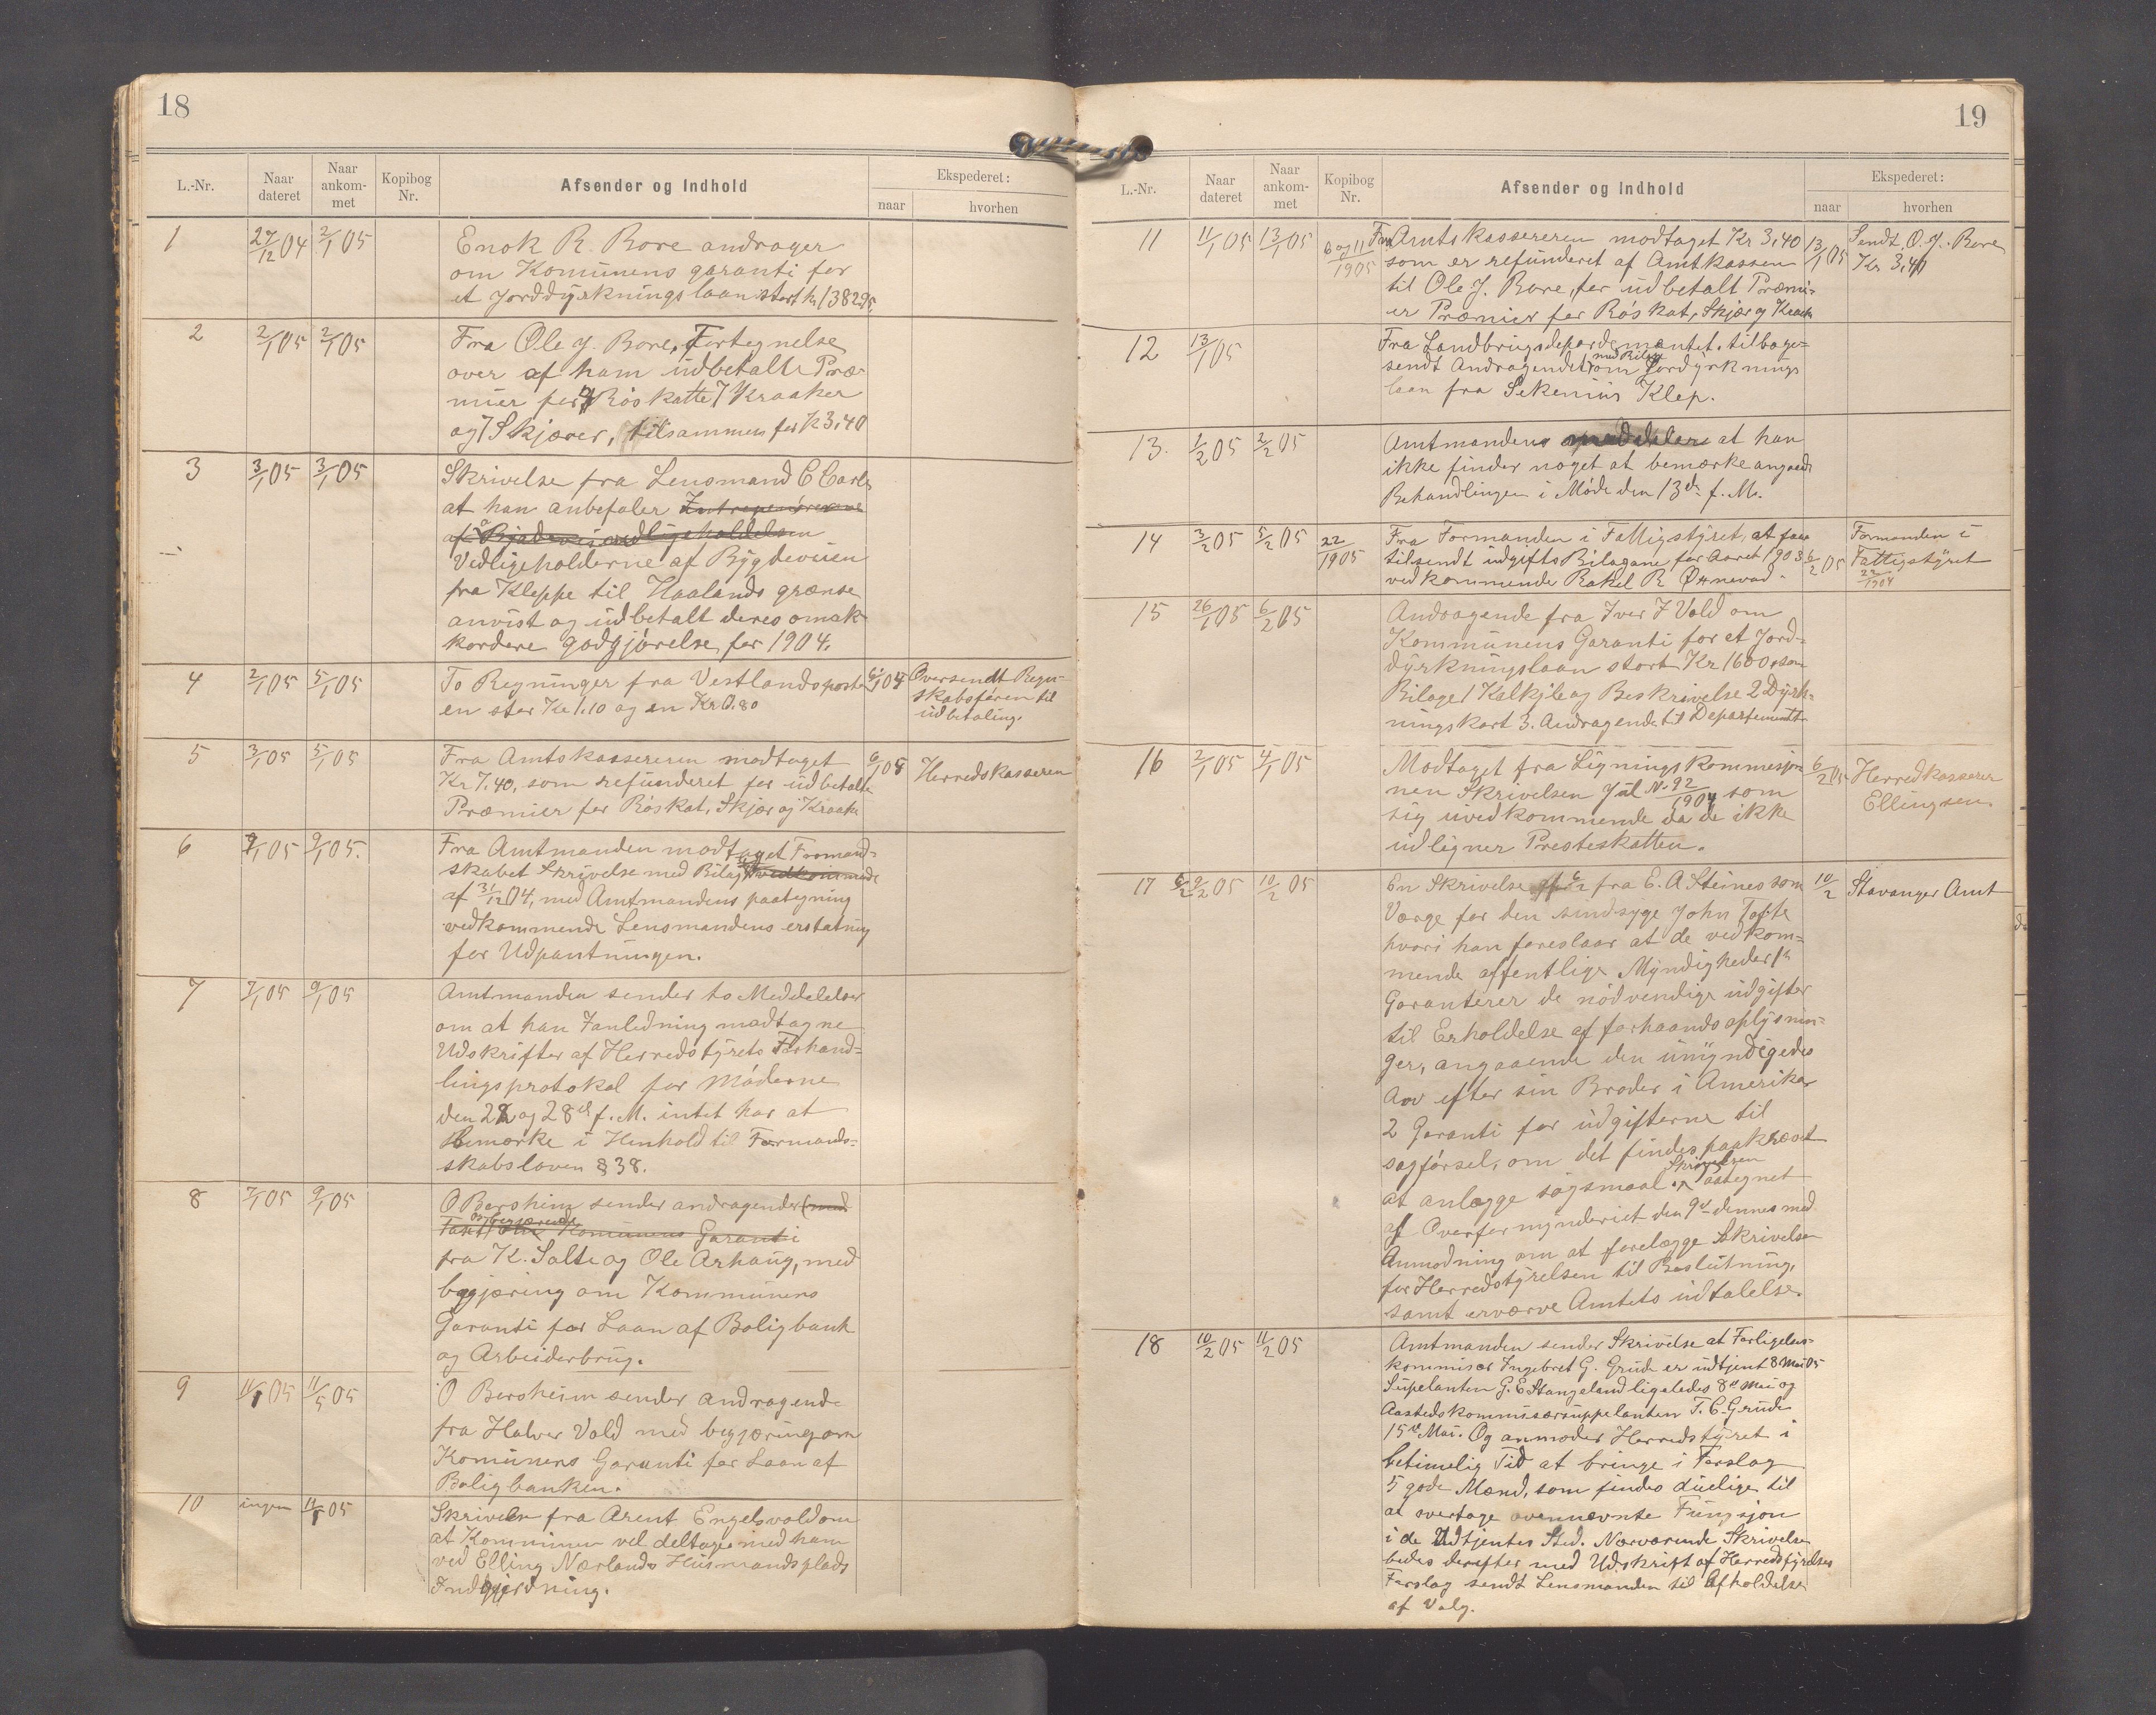 18
L.-Nr.
Naar dateret
Naar ankom-met
Kopibog Nr.
Afsender og Indhold
Ekspederet:
naar
hvorhen
1 27/12 04 2/1 05
Enok R. Bore andrager
om Komunens garanti for
et Jorddyrkningslaan stort kr 1382.95,
2 2/1 05 2/1 05
Fra Ole J. Bore, Fortegnelse
over af ham udbetalte Præ-
mier for Röskatte 7 Kraaker
og 7 Skjærer, tilsammen for K 3,40
3 3/1 05 3/1 05
Skrivelse fra Lensmand
at han anbefaler
Vedligeholderne af Bygdeveien
fra Kleppe til Haalands grænse
anvist og udbetalt deres omak-
kordere godgjörelse for 1904.
4 2/1 05 5/1 05
To Regninger fra Vestlandsposten 6/1 04 Oversendt Regn-
en stor Kr 1.10 og en Kr 0.80 skabsfören til
udbetaling.
5 3/1 05 5/1 05
Fra Amtskassereren modtaget 6/1 05 Herredskasseren
Kr 7.40, som refunderet for udbetalte
Præmier for Röskat, Skjær og Kraake
6 7/1 05 9/1 05.
Fra Amtmanden modtaget Formand-
skabet Skrivelse med Bilag
af 31/12 04, med Amtmandens paategning
vedkommende Lensmandens erstatning
for Udpantningen.
7 7/1 05 9/1 05
Amtmanden sender to Meddelelser
om at han Ianledning modtagne
Udskrifter af Herredstyrets Forhand-
lingsprotokol for Møderne
den 22 og 28de f. M. intet har at
Bemærke i Henhold til Formands-
skabsloven § 38.
8 7/1 05 9/1 05
O Bersheim sender andragender
Komunens Garanti
fra K. Salte og Ole Arhaug, med
begjæring om Kommunens
Garanti for Laan af Boligbank
og Arbeiderbrug.
9 11/1 05 11/5 05
O Bersheim sender andragende
fra Halvor Vold med begjæring om
Komunens Garanti for Laan af
Boligbanken.
10 ingen 11/1 05
Skrivelse fra Arent Engelsvold om
at Kommunen vel deltager med ham
ved Elling Nærlands Husmandsplads
Indgjerdning.
19
L.-Nr.
Naar dateret
Naar ankom-met
Kopibog Nr.
Afsender og Indhold
Ekspederet:
naar
hvorhen
11 11/1 05 13/1 05 6 og 11/1905
Fra Amtskassereren modtaget Kr 3,40 13/1 05 Sendt O. J. Bore
som er refunderet af Amtkassen Kr 3,40
til Ole J. Bore, for udbetalt Præmi-
er Præmier for Röskat, Skjær og Kraake
12 13/1 05
Fra Landbrugsdepardemantet. tilbage-
sendt Andragendet med Bilag om Jordyrknings
laan fra Sekenius Klep.
13. 1/2 05 2/2 05
Amtmandens at han
ikke finder noget at bemærke angaaende
Behandlingen i Möde den 13de f. M.
14 3/2 05 5/2 05 22/1905
Fra Formanden i Fattigstyret, at faa Formanden i
tilsendt udgifts Bilagene for Aaret 1903 6/2 05 Fattigstyret
vedkommende Rakel R Ørnevad. 22/1904
15 26/1 05 6/2 05
Andragende fra Iver I Vold om
Kommunens Garanti for et Jord-
dyrkningslaan stort Kr 1600, som
Bilage 1 Kalkjle og Beskrivelse 2 Dyrk-
ningskart 3. Andragende til Departementet
16 2/1 05 4/1 05
Modtaget fra Lignings Kommesjo- 6/2 05 Herredkasserer
nen Skrivelsen Jul No 92/1904 som Ellingsen.
sig uvedkommende da de ikke
udligner Presteskatten.
17 6/2 9/2 05 10/2 05
En Skrivelse af 6/2 fra E. A Steines som 10/2 Stavanger Amt
Værge for den sindsyge John Tofte
hvori han foreslaar at de vedkom-
mende offentlige Myndigheder
Garanterer de nödvendige udgifter
til Erholdelse af forhaandsoplysnin-
ger, angaaende den umyndigedes
Arv efter sin Broder i Amerika
2 Garanti for udgifterne til
sagförsel, om det findes paakrævet
at anlægge sögsmaal. Skrivelsen paategnet
af Overformynderiet den 9de dennes med
Anmodning om at forelægge Skrivelsen
for Herredstyrelsen til Beslutning,
samt erværve Amtets udtalelse.
18 10/2 05 11/2 05
Amtmanden sender Skrivelse at Forligelses-
kommisær Ingebret G. Grude er udtjent 8 Mai 05
Supelanten G. E Stangeland ligeledes 8de Mai og
Aastedskommisærsuppelanten T. E. Grude
15de Mai. Og anmoder Herredstyret i
betimelig Tid at bringe i Forslag
5 gode Mænd, som findes duelige til
at overtage ovennævnte Fungsjon
i de Udtjentes Sted. Nærværende Skrivelse
bedes derefter med Udskrift af Herredstyrelses
Forslag sendt Lensmanden til Afholdelse
af Valg.